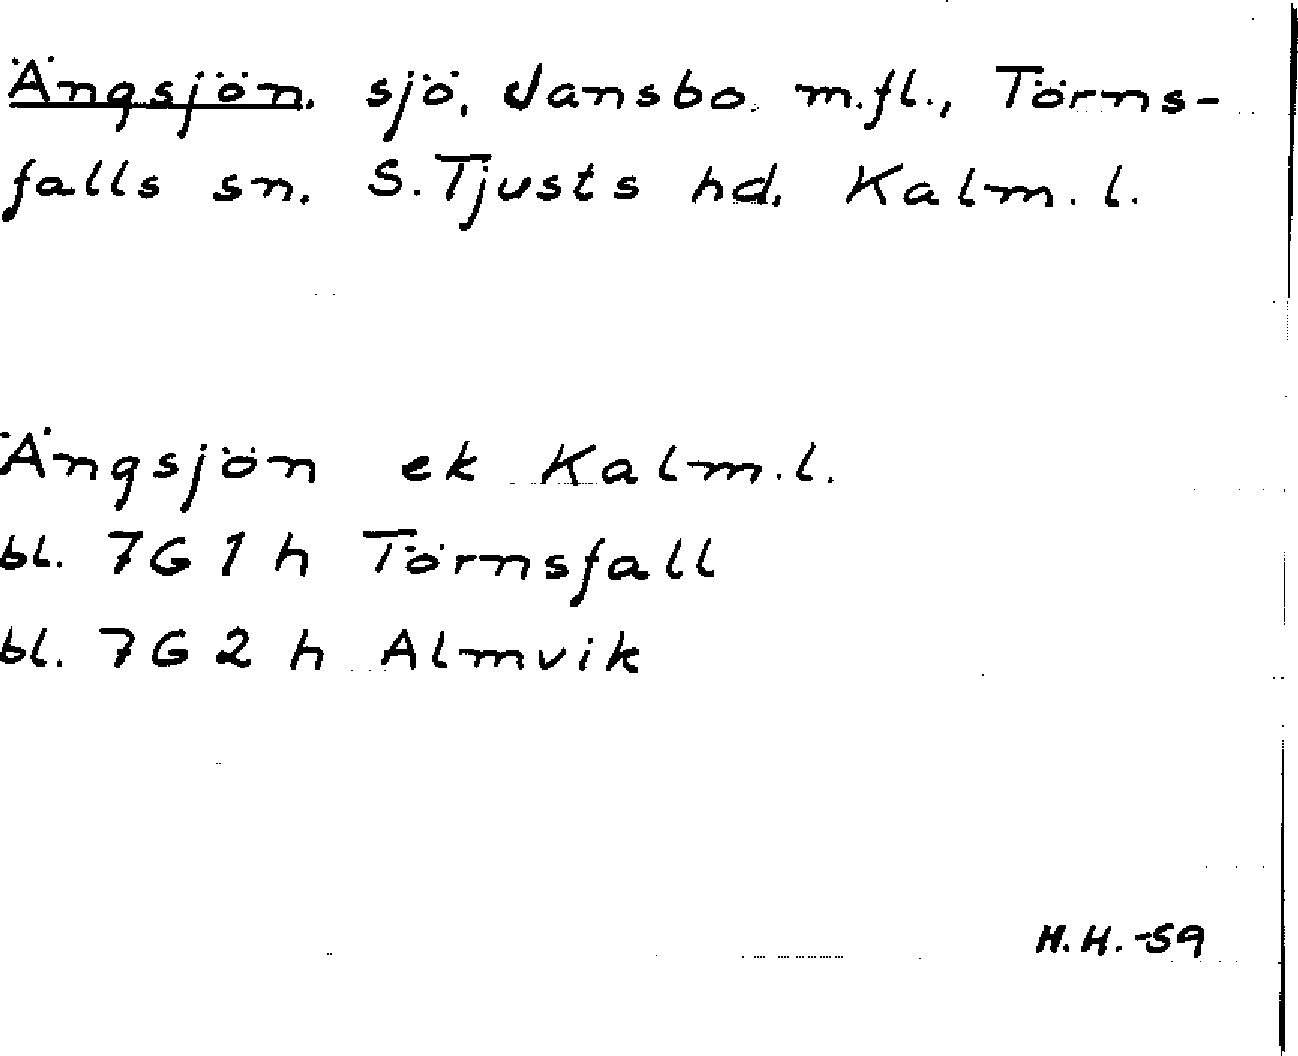 Ängsjön. sjö, Jansbo m.fl., Törns-
falls sn. S. Tjusts hd. Kalm. l.
Ängsjön ek Kalm. l.
bl. 7G 1 h Törnsfall
bl. 7G 2 h Almvik
H.H. -59